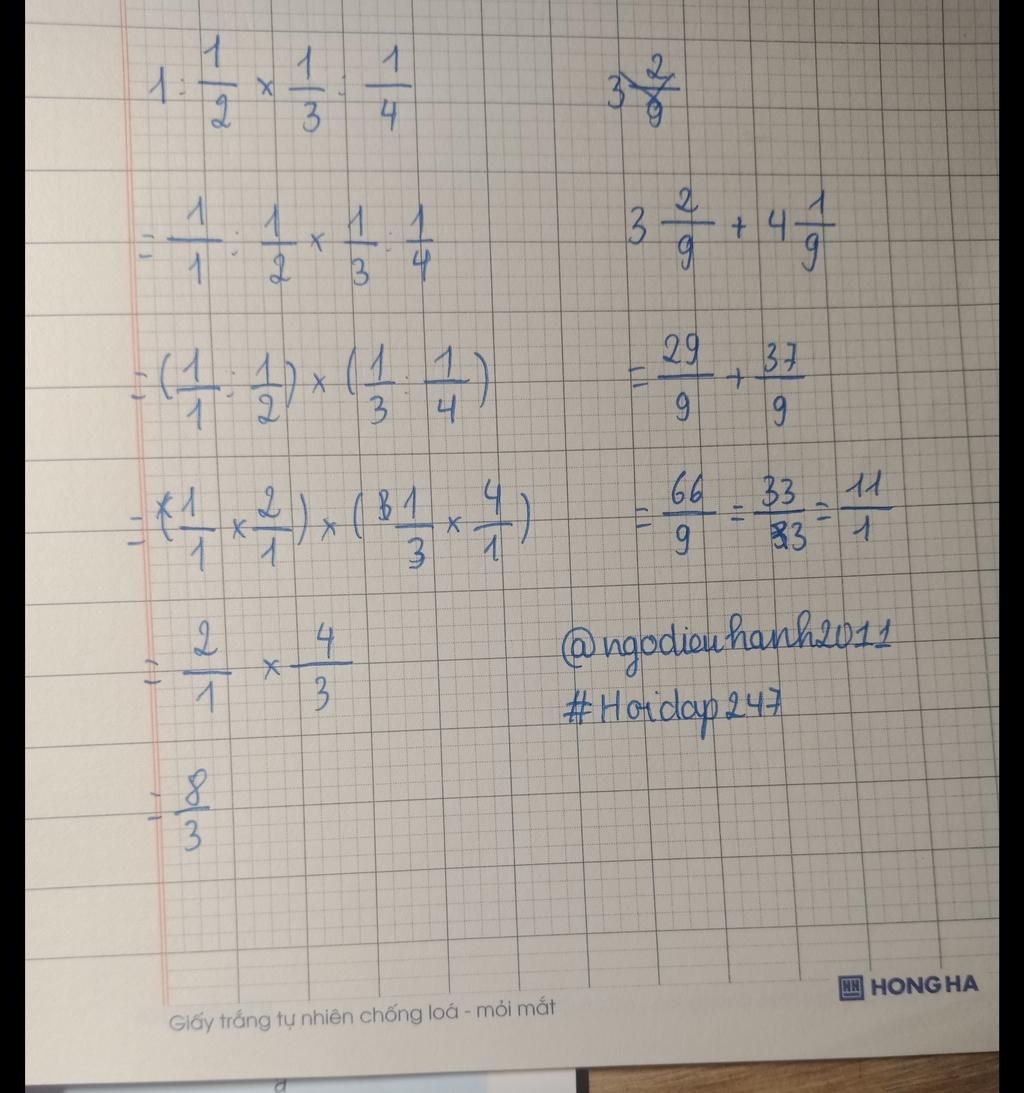 1 : 1/2 × 1/3 : 1/4
= 1/1 : 1/2 × 1/3 : 1/4
= (1/1 : 1/2) × (1/3 : 1/4)
= (1/1 × 2/1) × (1/3 × 4/1)
= 2/1 × 4/3
= 8/3
3 2/9
3 2/9 + 4 1/9
= 29/9 + 37/9
= 66/9 = 33/3 = 11/1
@ngodieuhanh2011
#Hoidap247
HH HONG HA
Giấy trắng tự nhiên chống loá - mỏi mắt